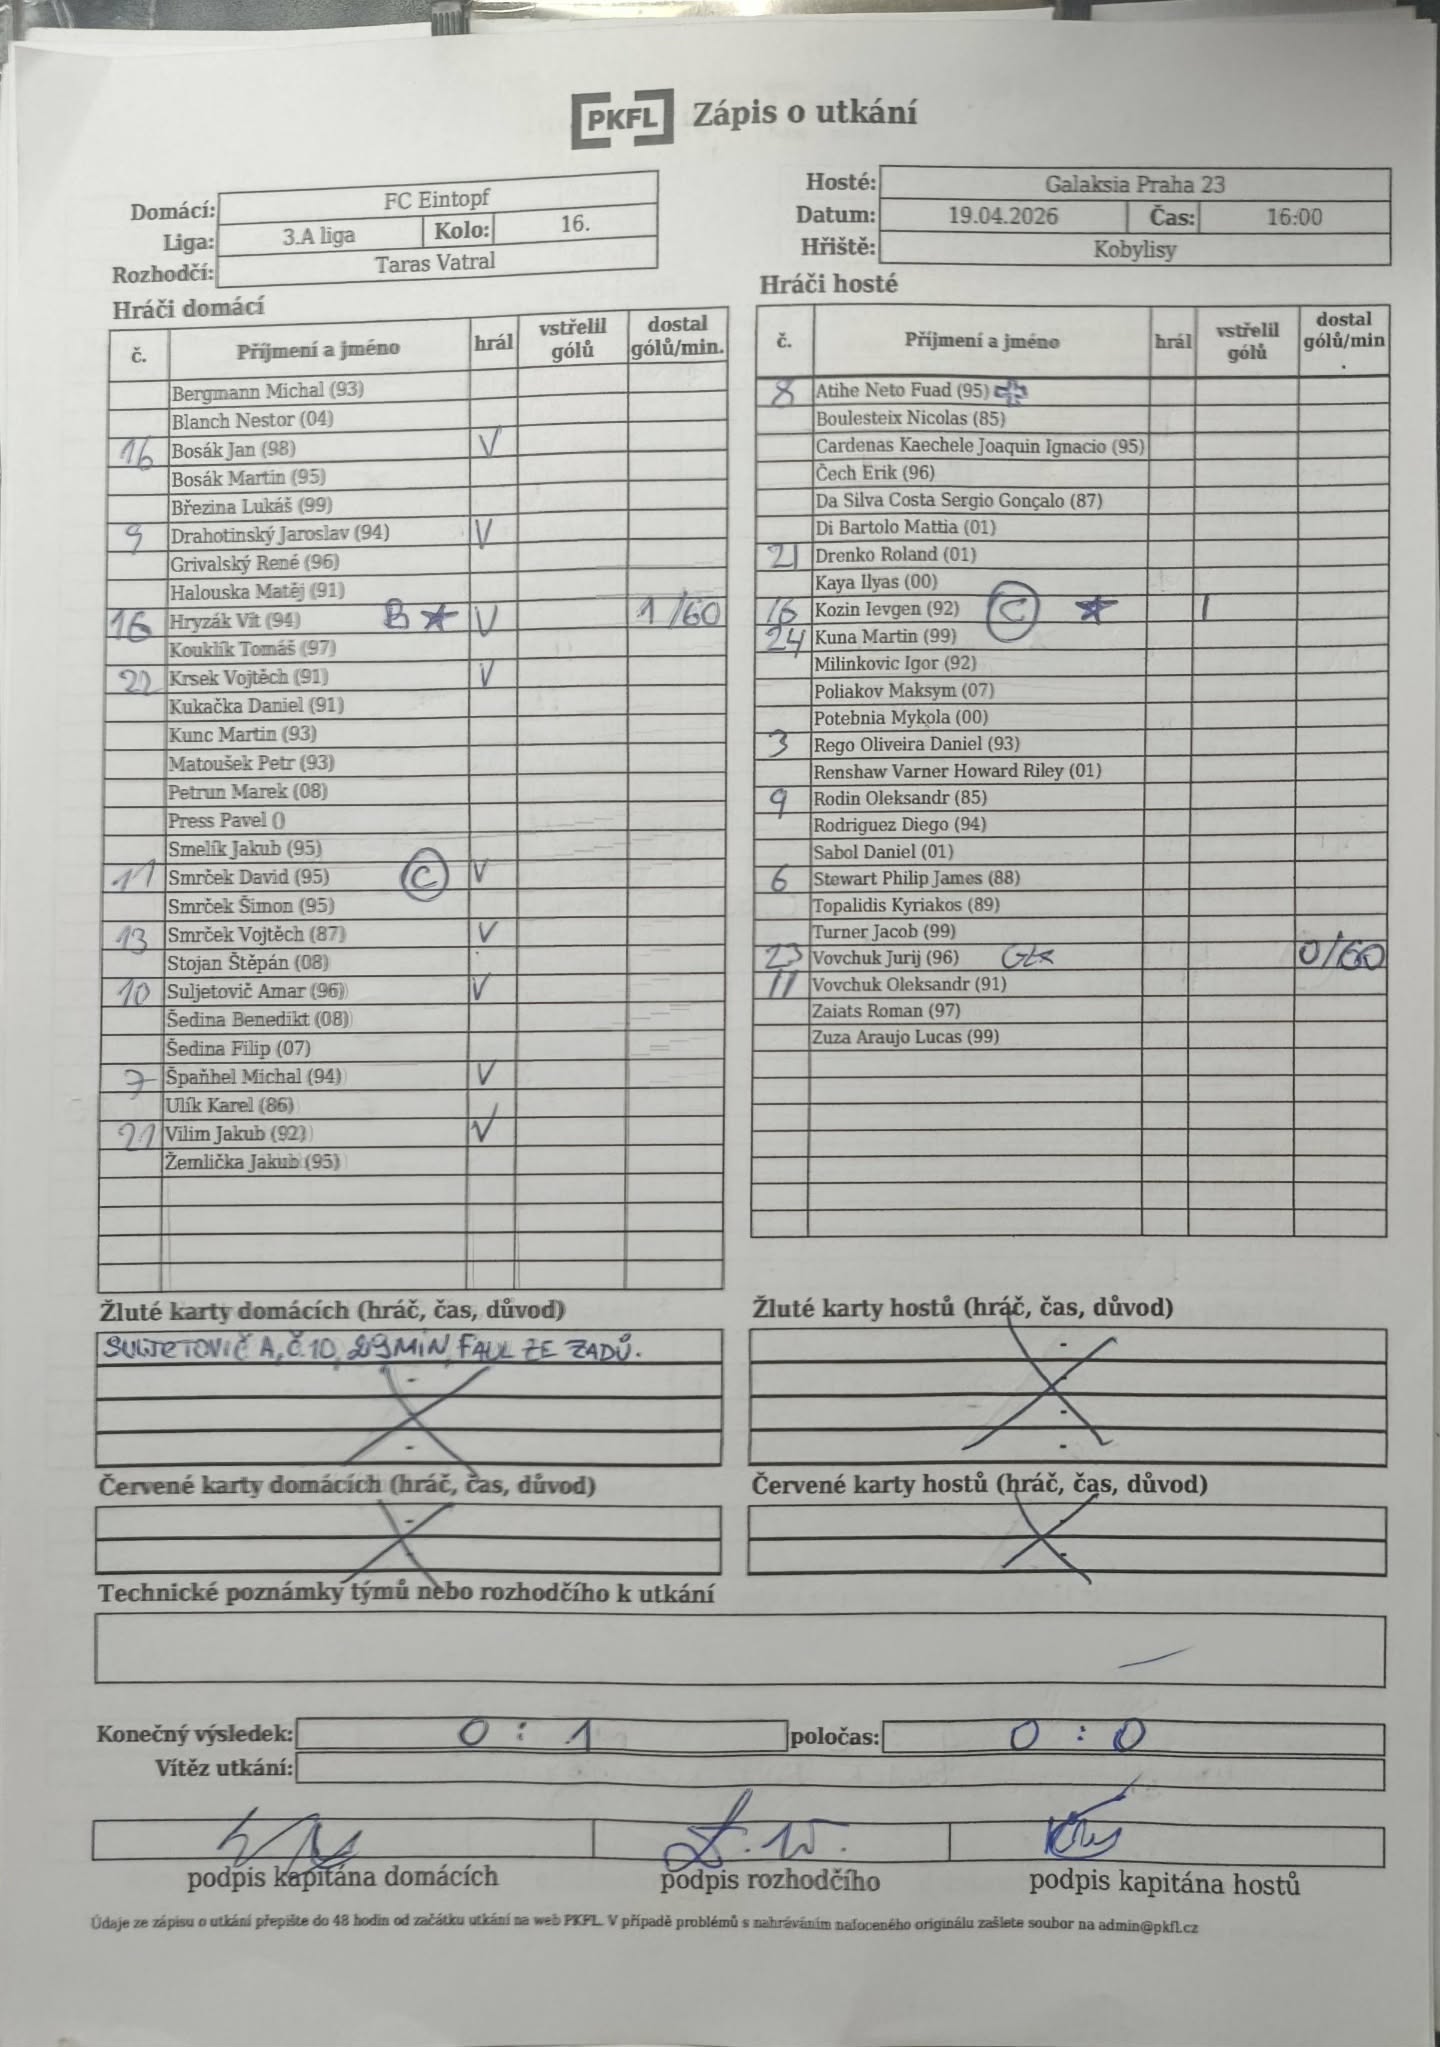 PKFL Zápis o utkání
Domácí: FC Eintopf
Liga: 3.A liga Kolo: 16.
Rozhodčí: Taras Vatral
Hosté: Galaksia Praha 23
Datum: 19.04.2026 Čas: 16:00
Hřiště: Kobylisy
Hráči domácí
č. Příjmení a jméno hrál vstřelil gólů dostal gólů/min.
Bergmann Michal (93)
Blanch Nestor (04)
16 Bosák Jan (98) V
Bosák Martin (95)
Březina Lukáš (99)
9 Drahotinský Jaroslav (94) V
Grivalský René (96)
Halouska Matěj (91)
16 Hryzák Vít (94) B ★ V 1/60
Kouklík Tomáš (97)
22 Krsek Vojtěch (91) V
Kukačka Daniel (91)
Kunc Martin (93)
Matoušek Petr (93)
Petrun Marek (08)
Press Pavel ()
Smelík Jakub (95)
11 Smrček David (95) C V
Smrček Šimon (95)
13 Smrček Vojtěch (87) V
Stojan Štěpán (08)
10 Suljetovič Amar (96) V
Šedina Benedikt (08)
Šedina Filip (07)
7 Špaňhel Michal (94) V
Ulík Karel (86)
21 Vilim Jakub (92) V
Žemlička Jakub (95)
Hráči hosté
č. Příjmení a jméno hrál vstřelil gólů dostal gólů/min
8 Atihe Neto Fuad (95)
Boulesteix Nicolas (85)
Cardenas Kaechele Joaquin Ignacio (95)
Čech Erik (96)
Da Silva Costa Sergio Gonçalo (87)
Di Bartolo Mattia (01)
21 Drenko Roland (01)
Kaya Ilyas (00)
16 Kozin Ievgen (92) C ★ 1
24 Kuna Martin (99)
Milinkovic Igor (92)
Poliakov Maksym (07)
Potebnia Mykola (00)
3 Rego Oliveira Daniel (93)
Renshaw Varner Howard Riley (01)
9 Rodin Oleksandr (85)
Rodriguez Diego (94)
Sabol Daniel (01)
6 Stewart Philip James (88)
Topalidis Kyriakos (89)
Turner Jacob (99)
23 Vovchuk Jurij (96) GK 0/60
11 Vovchuk Oleksandr (91)
Zaiats Roman (97)
Zuza Araujo Lucas (99)
Žluté karty domácích (hráč, čas, důvod)
SULJETOVIČ A, Č.10, 29 MIN, FAUL ZE ZADŮ.
Žluté karty hostů (hráč, čas, důvod)
Červené karty domácích (hráč, čas, důvod)
Červené karty hostů (hráč, čas, důvod)
Technické poznámky týmů nebo rozhodčího k utkání
Konečný výsledek: 0 : 1 poločas: 0 : 0
Vítěz utkání:
podpis kapitána domácích podpis rozhodčího podpis kapitána hostů
Údaje ze zápisu o utkání přepište do 48 hodin od začátku utkání na web PKFL. V případě problémů s nahráváním nafoceného originálu zašlete soubor na admin@pkfl.cz